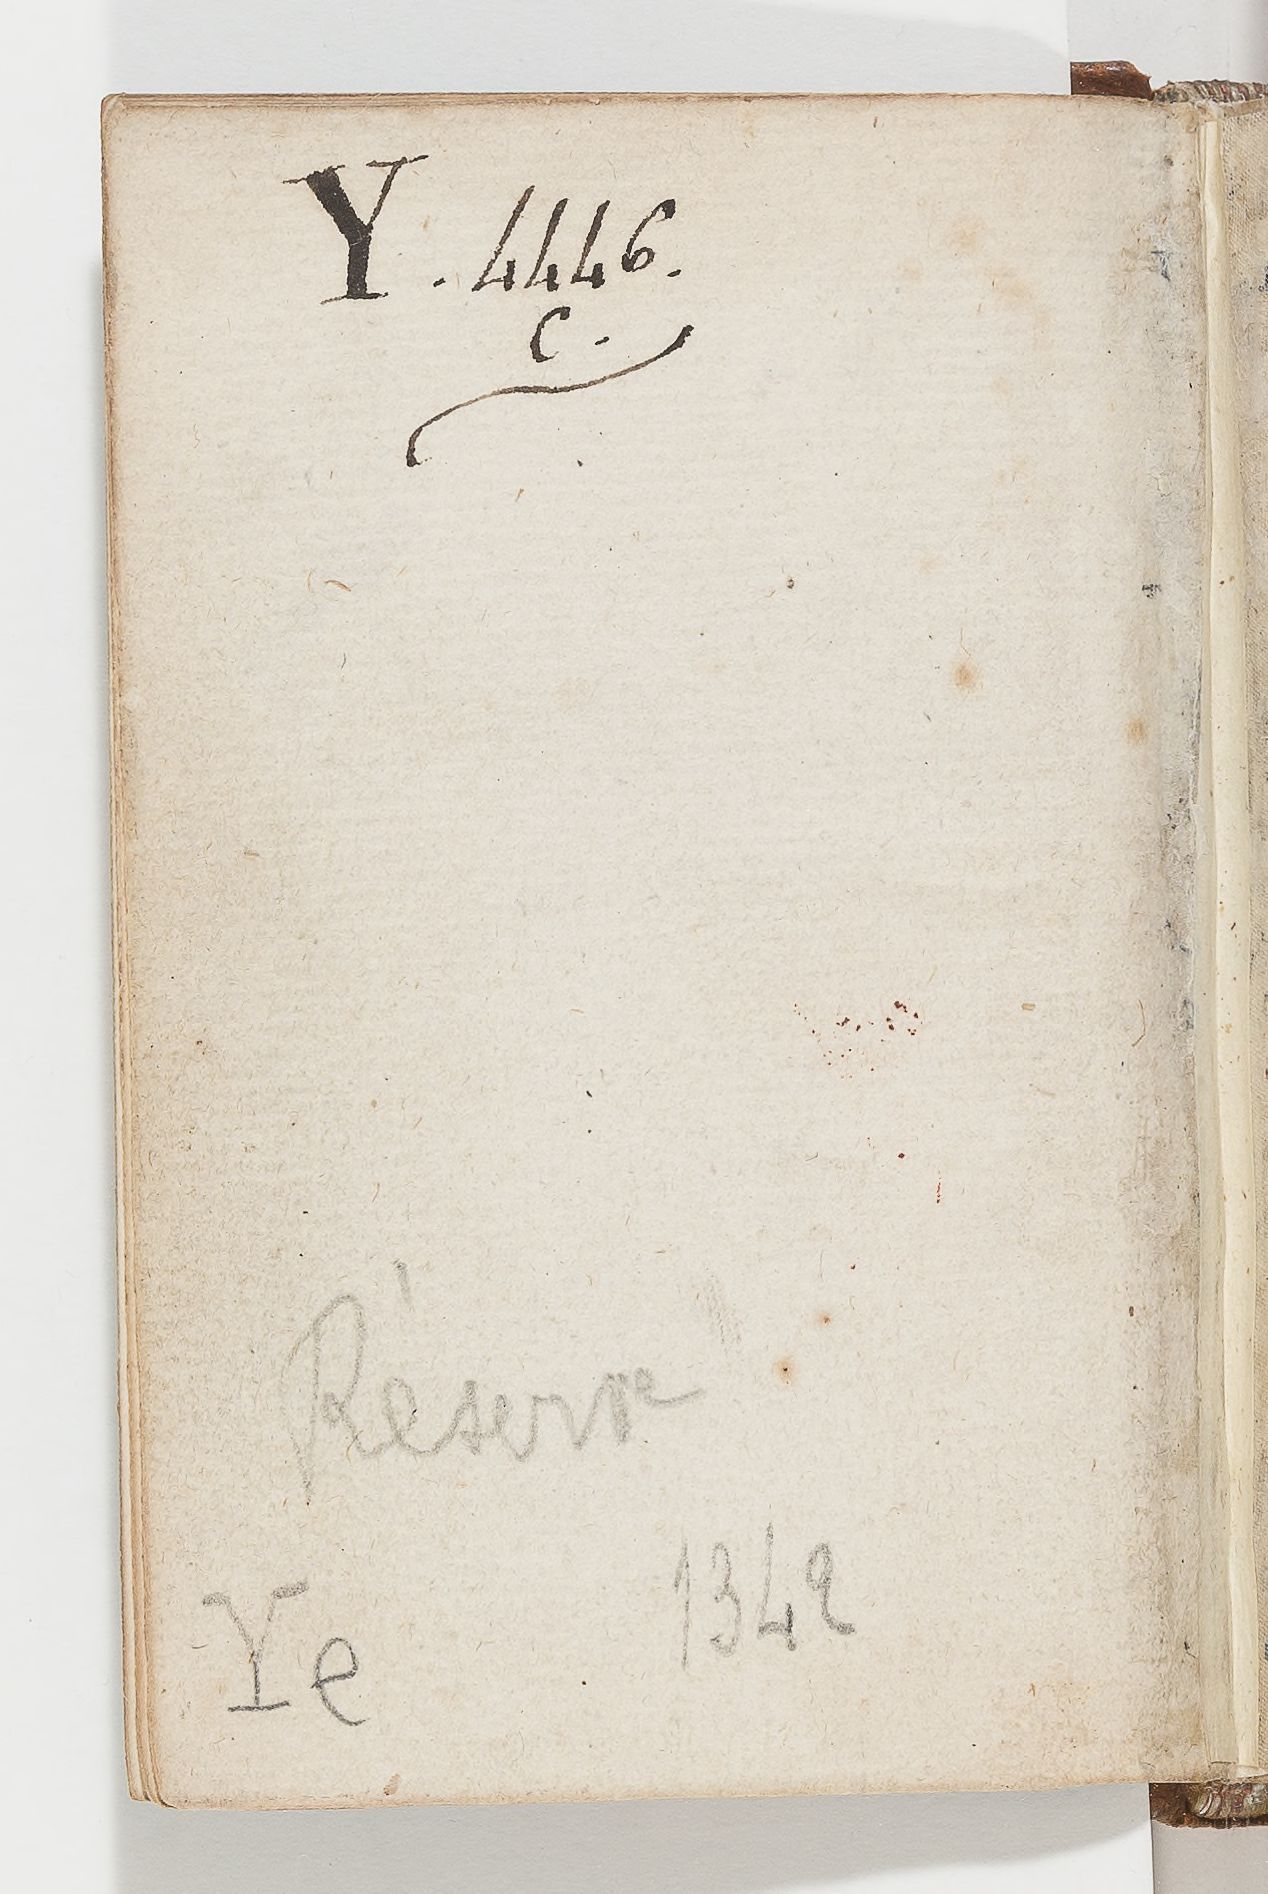 Y. 4446.
C.
Réserve
Ye 1342